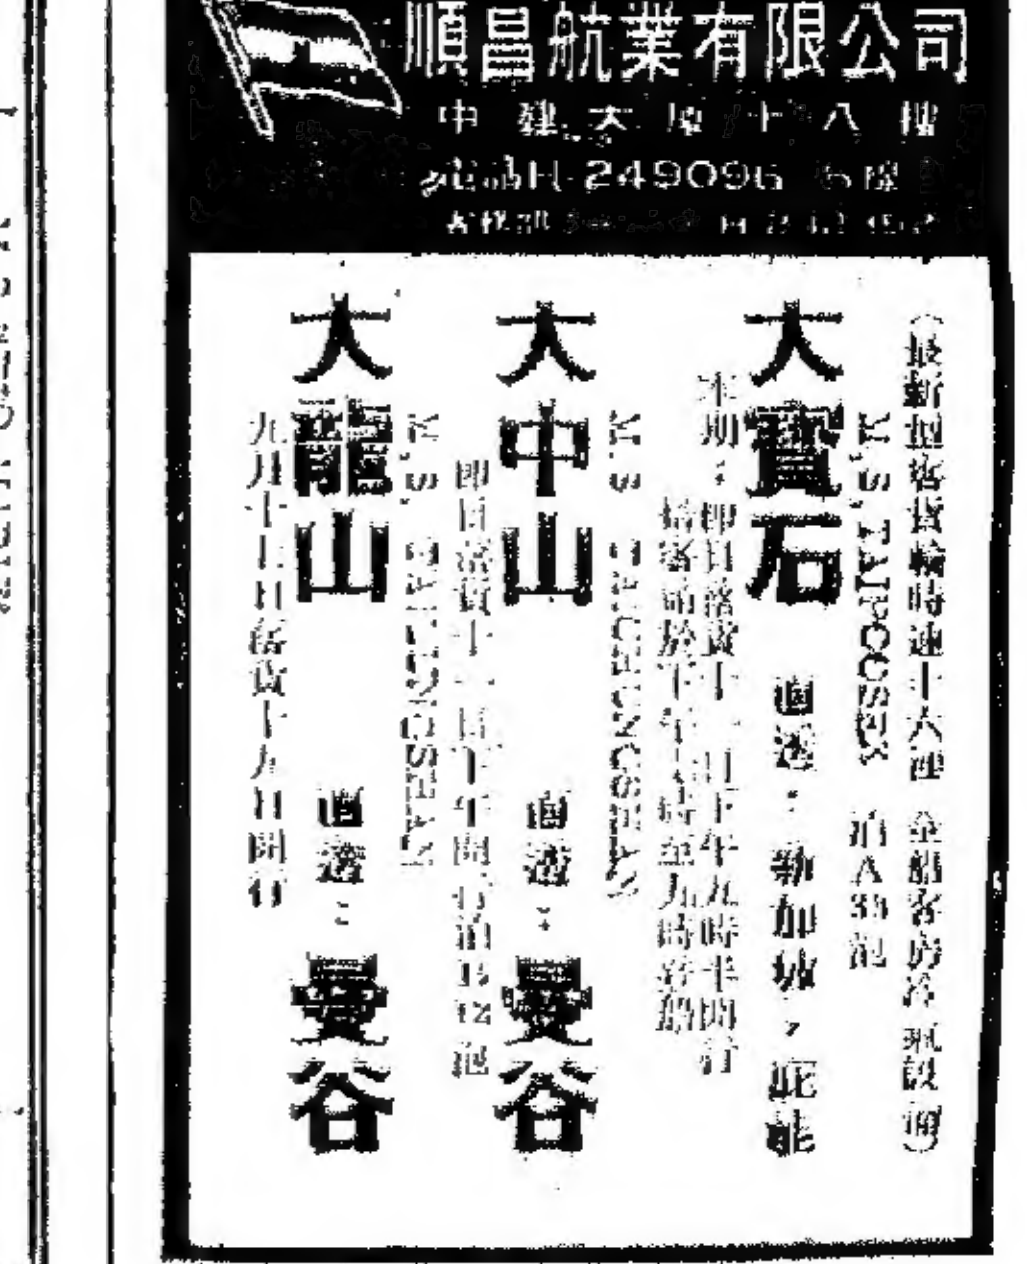 順昌航業有限公司
中建大廈十八樓
電話H-249096
(最新型客貨輪時速十八浬 全船客房冷氣設備)
M.S. TAIPOOSEK 泊A33泡
大寶石 直透:新加坡,庇能
本期:即日落貨十一日下午九時半開行
搭客請於下午七時至九時登船
M.S. TAICHUNGSHAN
大中山 直透:曼谷
即日落貨十一日下午開行泊B12泡
M.S. TAILUNGSHAN
大龍山 直透:曼谷
九月十七日落貨十九日開行